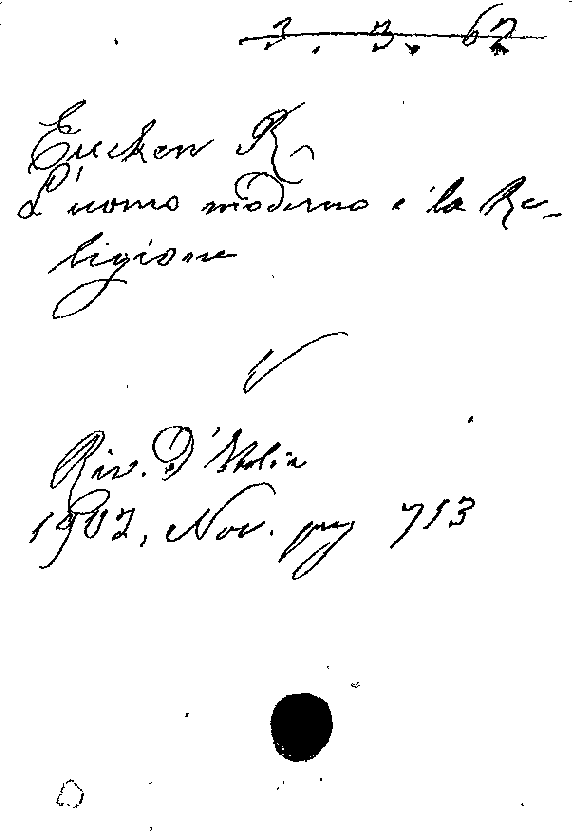 3. 3. 62
Eucken R.
L'uomo moderno e la Re-
ligione
V
Riv. D'Italia
1902, Nov. pag 713